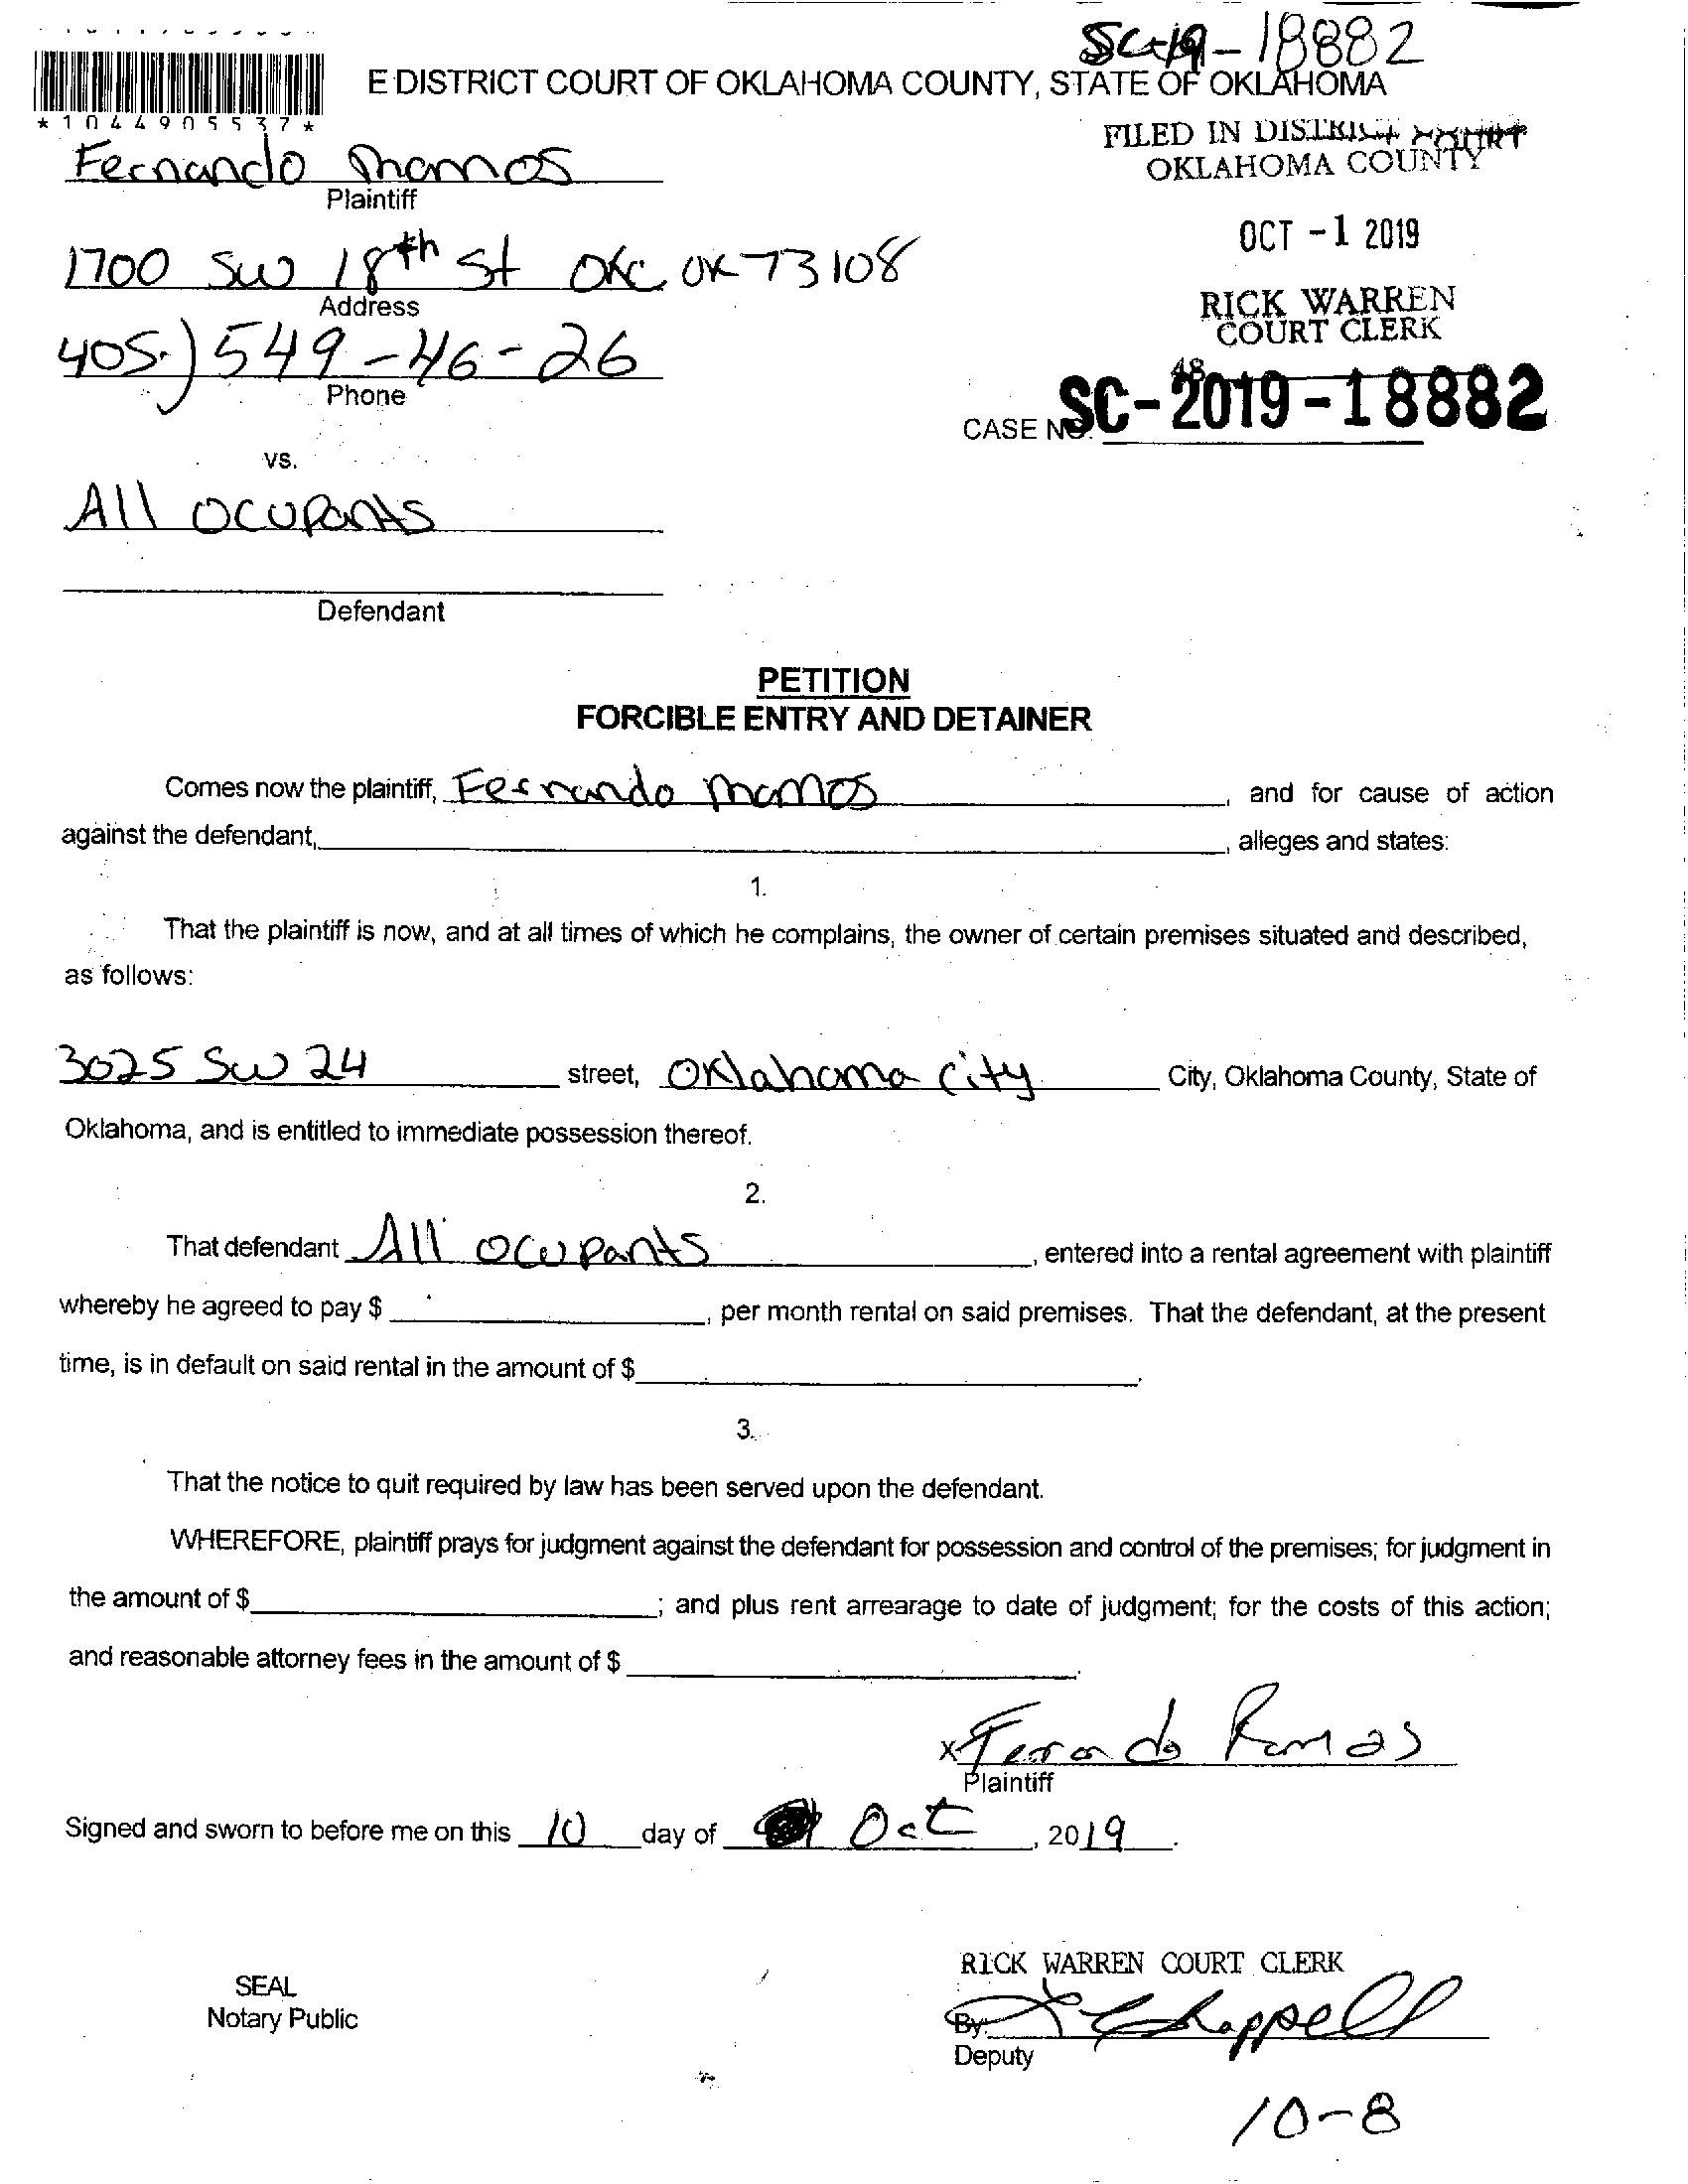 SC-19-18882
E DISTRICT COURT OF OKLAHOMA COUNTY, STATE OF OKLAHOMA
*1044905537*
FILED IN DISTRICT COURT
OKLAHOMA COUNTY
Fernando Mamos
Plaintiff
OCT -1 2019
1700 SW 18th St OKC OK 73108
Address
RICK WARREN
COURT CLERK
405.) 549-46-26
Phone
48
CASE NO. SC-2019-18882
vs.
All ocupants
Defendant
PETITION
FORCIBLE ENTRY AND DETAINER
Comes now the plaintiff, Fernando Mamos, and for cause of action
against the defendant, , alleges and states:
1.
That the plaintiff is now, and at all times of which he complains, the owner of certain premises situated and described,
as follows:
3025 SW 24 street, Oklahoma City City, Oklahoma County, State of
Oklahoma, and is entitled to immediate possession thereof.
2.
That defendant All ocupants, entered into a rental agreement with plaintiff
whereby he agreed to pay $ , per month rental on said premises. That the defendant, at the present
time, is in default on said rental in the amount of $ .
3.
That the notice to quit required by law has been served upon the defendant.
WHEREFORE, plaintiff prays for judgment against the defendant for possession and control of the premises; for judgment in
the amount of $ ; and plus rent arrearage to date of judgment; for the costs of this action;
and reasonable attorney fees in the amount of $ .
x Fernando Ramos
Plaintiff
Signed and sworn to before me on this 10 day of Oct, 2019.
RICK WARREN COURT CLERK
SEAL
Notary Public
By: Chappell
Deputy
10-8